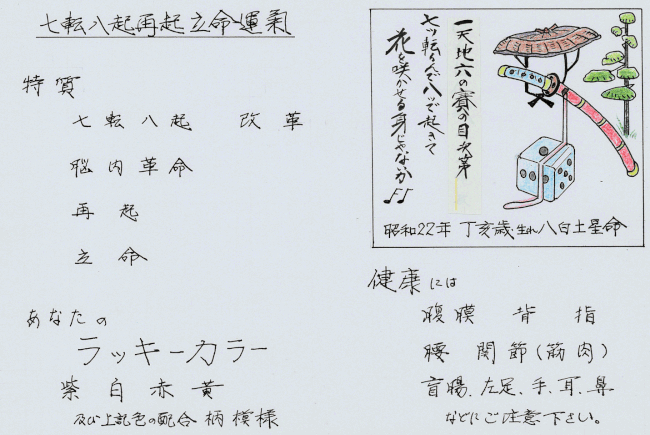 七転八起再起立命運氣
特質
七転八起 改革
脳内革命
再起
立命
あなたの
ラッキーカラー
紫白赤黄
及び上記色の配合 柄模様
一天地六の賽の目次第
七ツ転んで八ツで起きて
花を咲かせる身じゃなか♪♪
昭和22年 丁亥歳生れ八白土星命
健康には
腹膜 背 指
腰 関節(筋肉)
盲腸、左足、手、耳、鼻
などにご注意下さい。